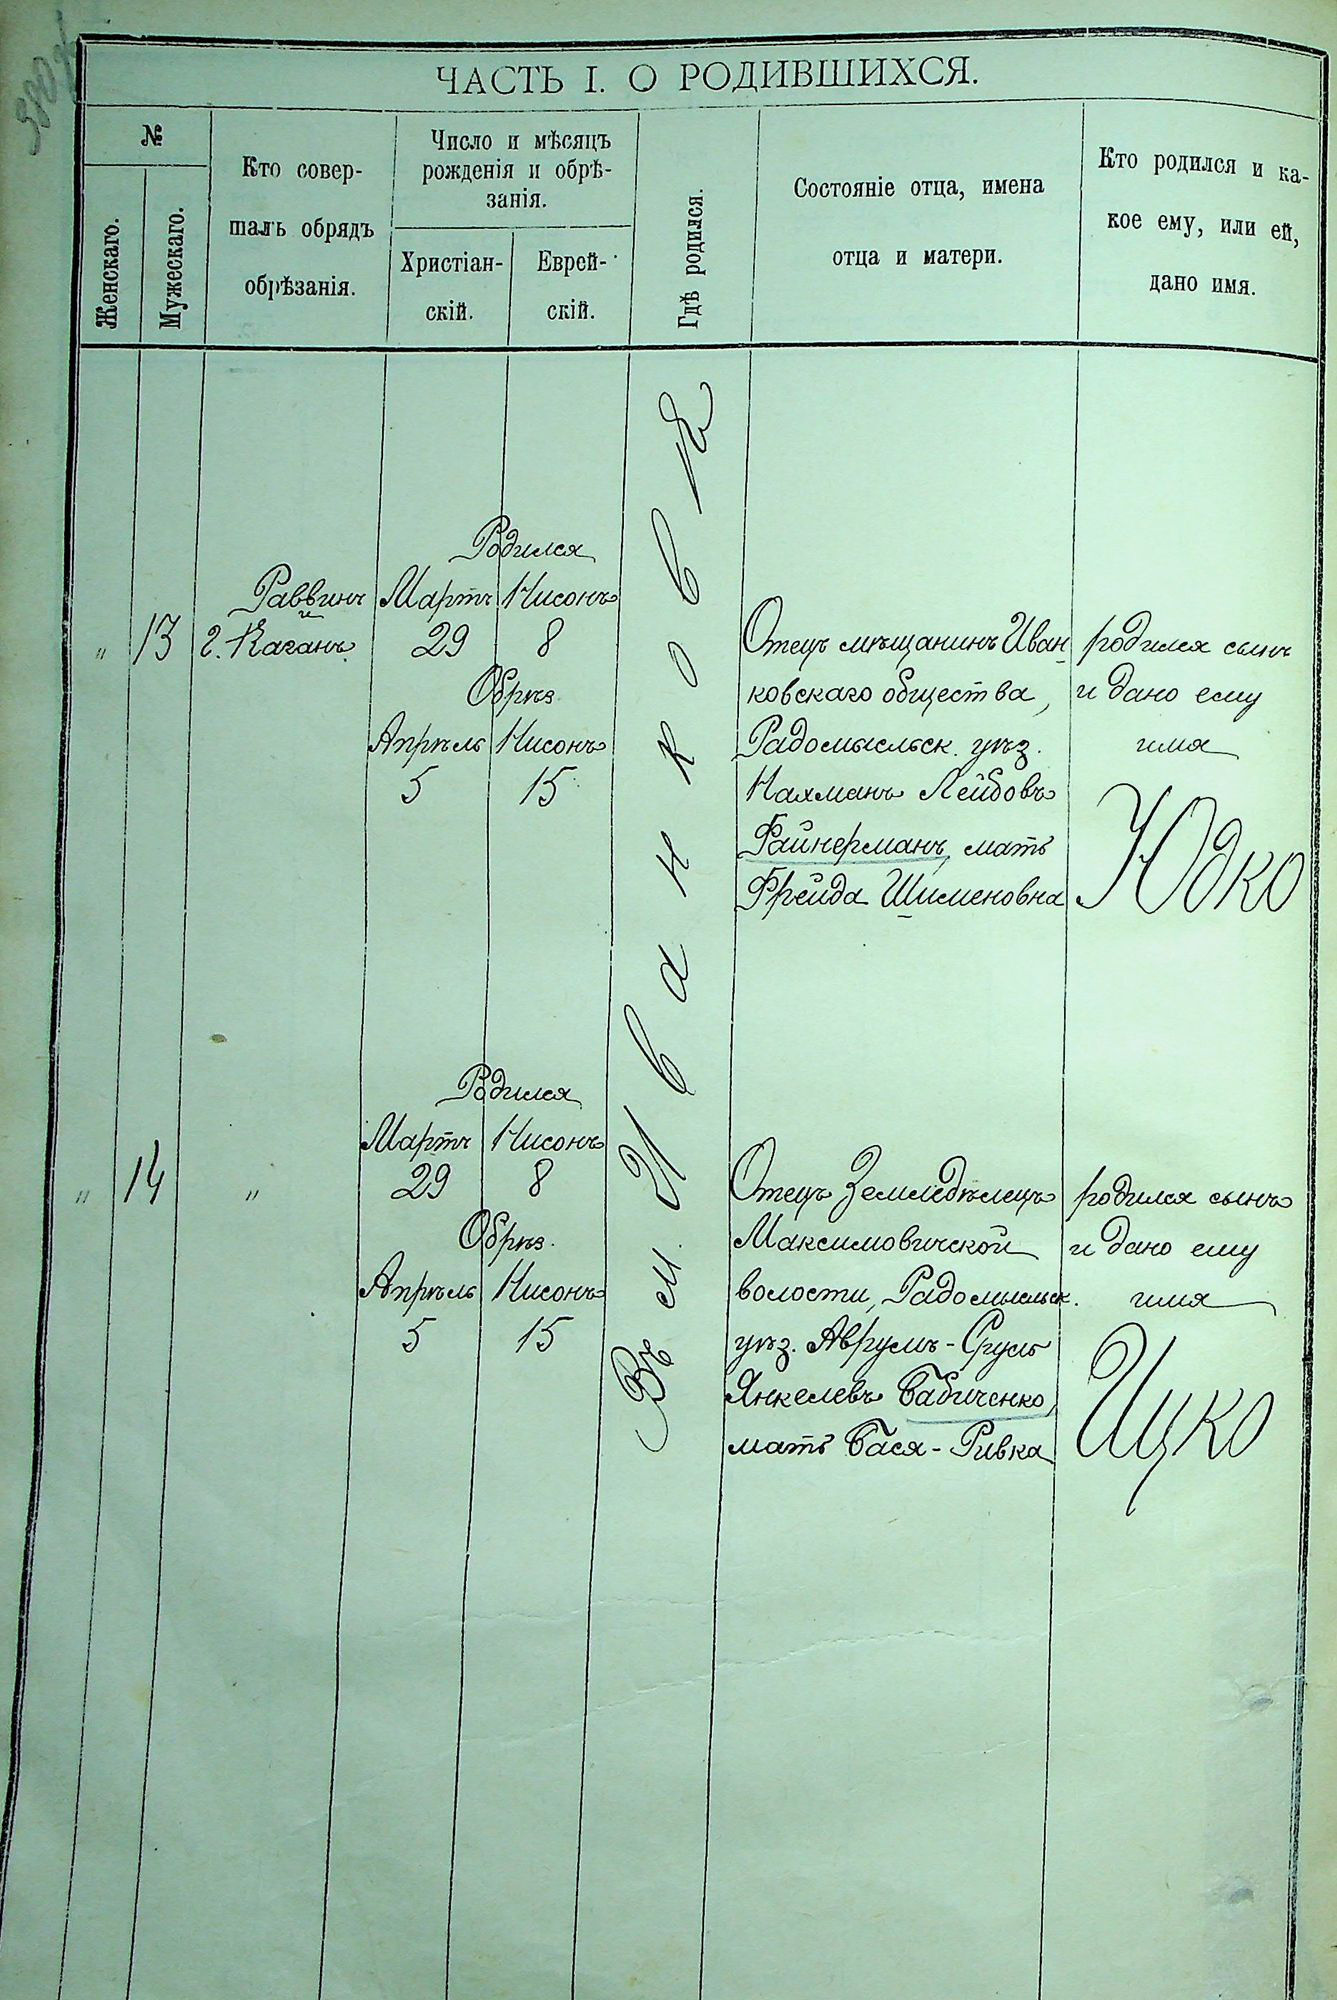 ЧАСТЬ I. О РОДИВШИХСЯ.
№
Женскаго.
Мужескаго.
Кто совер-
шалъ обрядъ
обрѣзанія.
Число и мѣсяцъ
рожденія и обрѣ-
занія.
Христіан-
скій.
Еврей-
скій.
Гдѣ родился.
Состояніе отца, имена
отца и матери.
Кто родился и ка-
кое ему, или ей,
дано имя.
Въ м. Иванковѣ
„ 13
Раввинъ
г. Каганъ
Родился
Мартъ Нисонъ
29 8
Обрѣз.
Апрѣль Нисонъ
5 15
Отецъ мѣщанинъ Иван
ковскаго общества,
Радомысльск. уѣз.
Нахманъ Лейбовъ
Файнерманъ, мать
Фрейда Шименовна
родился сынъ
и дано ему
имя
Юдко
„ 14 „
Родился
Мартъ Нисонъ
29 8
Обрѣз.
Апрѣль Нисонъ
5 15
Отецъ Земледѣлецъ
Максимовичской
волости, Радомысльск.
уѣз. Аврумъ-Сруль
Янкелевъ Бабиченко,
мать Бася-Ривка
родился сынъ
и дано ему
имя
Ицко